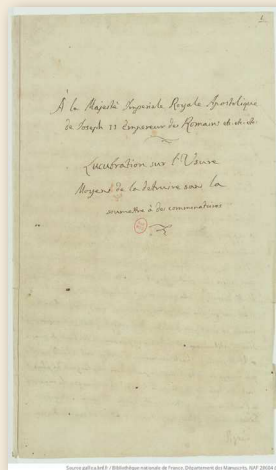 1.
À la Majesté Imperiale Royale Apostolique
de Joseph II Empereur des Romains etc. etc. etc.
Lucubration sur l'Usure
Moyens de la detruire sans la
soumettre à des commentaires
Source gallica.bnf.fr / Bibliothèque nationale de France. Département des Manuscrits. NAF